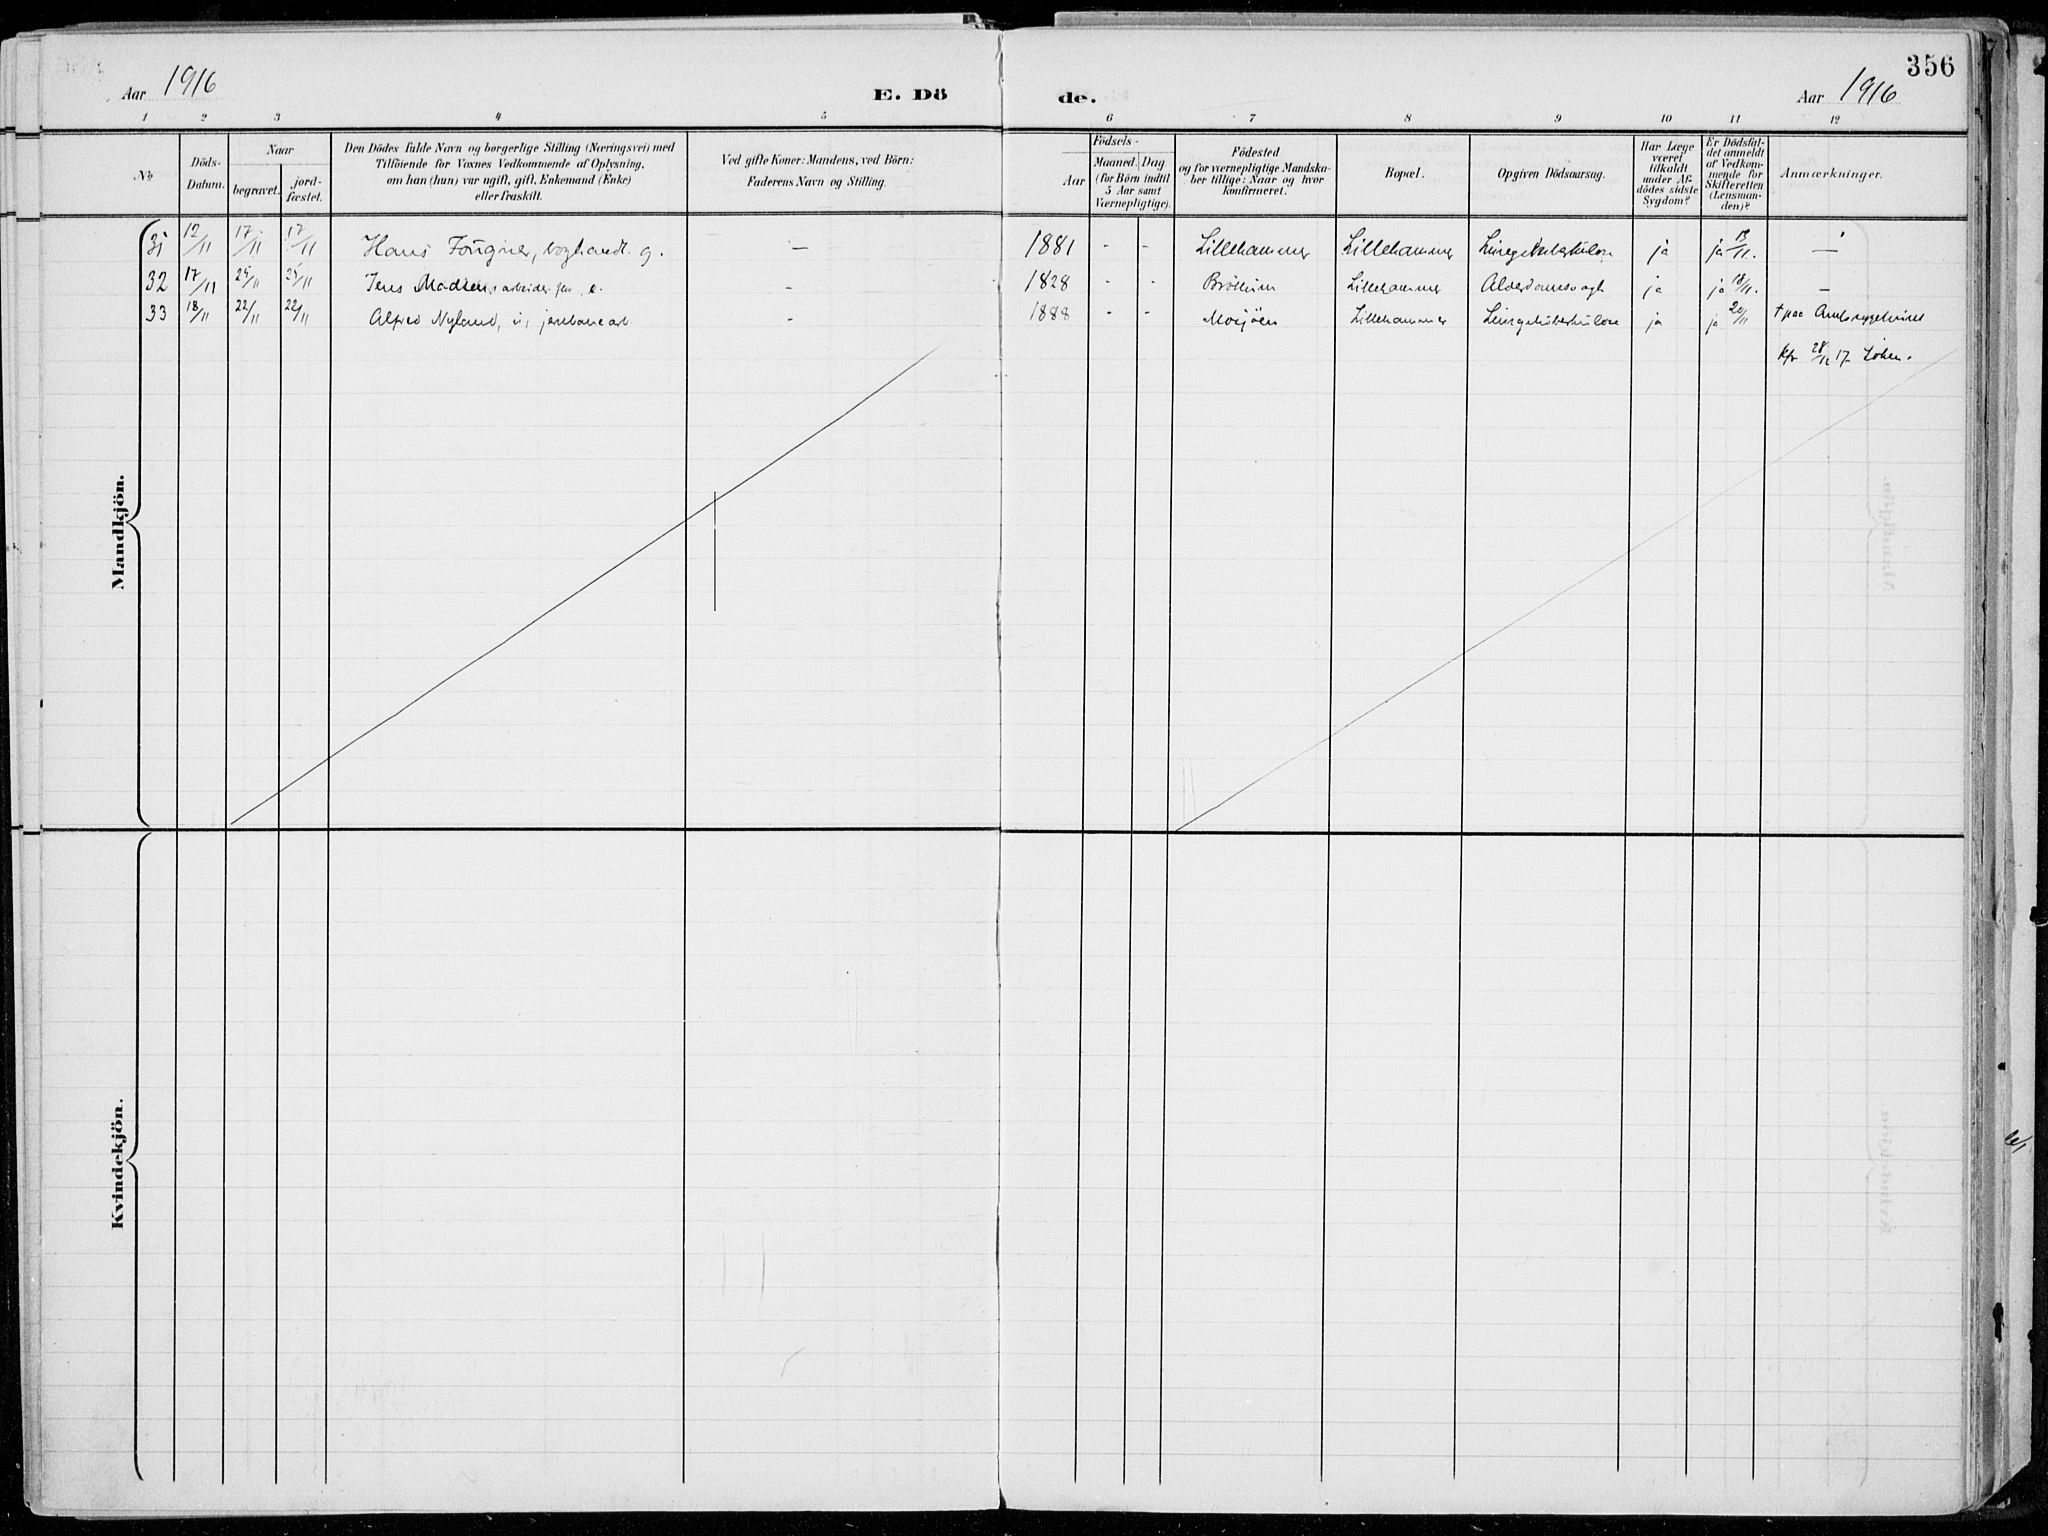 356
Aar 1916
E. Dö
de.
Aar 1916
1 2 3 4 5 6 7 8 9 10 11 12
No
Döds-
Datum.
Naar
begravet.
jord-
fæstet.
Den Dödes fulde Navn og borgerlige Stilling (Næringsvei) med
Tilföiende for Voxnes Vedkommende af Oplysning,
om han (hun) var ugift, gift, Enkemand (Enke)
eller fraskilt.
Ved gifte Koner: Mandens, ved Börn:
Faderens Navn og Stilling.
Födsels-
Aar
Maaned.
Dag
(for Börn indtil
5 Aar samt
Værnepligtige).
Födested
og for værnepligtige Mandska-
ber tillige: Naar og hvor
konfirmeret.
Bopæl.
Opgiven Dödsaarsag.
Har Læge
været
tilkaldt
under Af-
dödes sidste
Sygdom?
Er Dödsfal-
det anmeldt
af Vedkom-
mende for
Skifteretten
(Lensman-
den)?
Anmærkninger.
31 12/11 17/11 17/11 Hans Fougner, boghandl. g. — 1881 - - Lillehammer Lillehammer Lungetuberkulose ja ja 13/11. —
32 17/11 25/11 25/11 Jens Madsen, arbeider, e. - 1828 - - Bröttum Lillehammer Alderdomssvagh ja ja 18/11. —
33 18/11 22/11 22/11 Alfred Nyland, u, jernbanearb - 1888 - - Mosjöen Lillehammer Lungetuberkulose ja ja 20/11 † paa Amtssygehuset
Kfr 28/12 17
Mandkjön.
Kvindekjön.